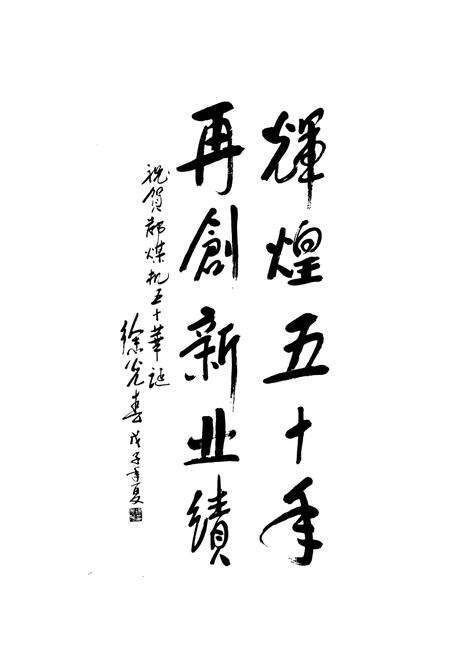 輝煌五十年
再創新业績
祝賀郑煤机五十華诞
徐光春 戊子年夏